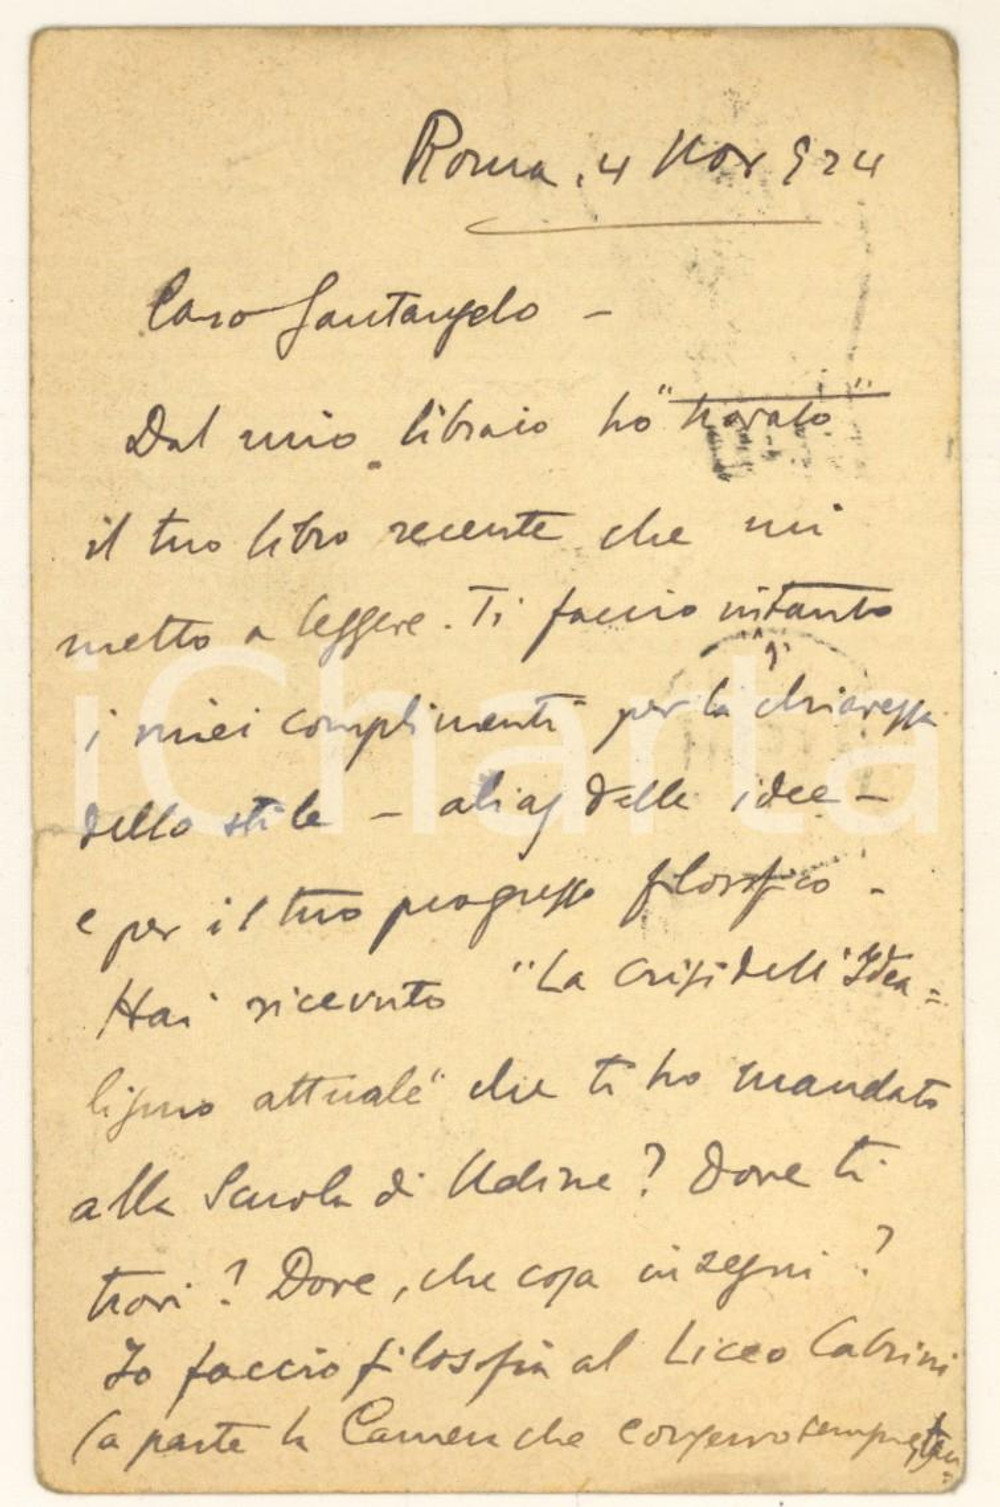 Roma, 4 Nov 924
Caro Santangelo -
Dal mio libraio ho "trovato"
il tuo libro recente che mi
metto a leggere. Ti faccio intanto
i miei complimenti per la chiarezza
dello stile - alias delle idee -
e per il tuo progresso filosofico -
Hai ricevuto "La Crisi dell'Idea=
lismo attuale" che ti ho mandato
alla Scuola di Udine? Dove ti
trovi? Dove, che cosa insegni?
Io faccio filosofia al Liceo
(a parte la Camera che conservo sempre,
iCharta